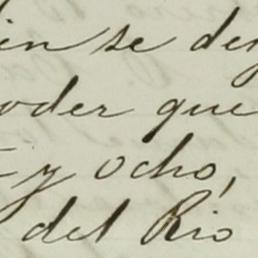 en se de
oder que
y ocho,
del Rio